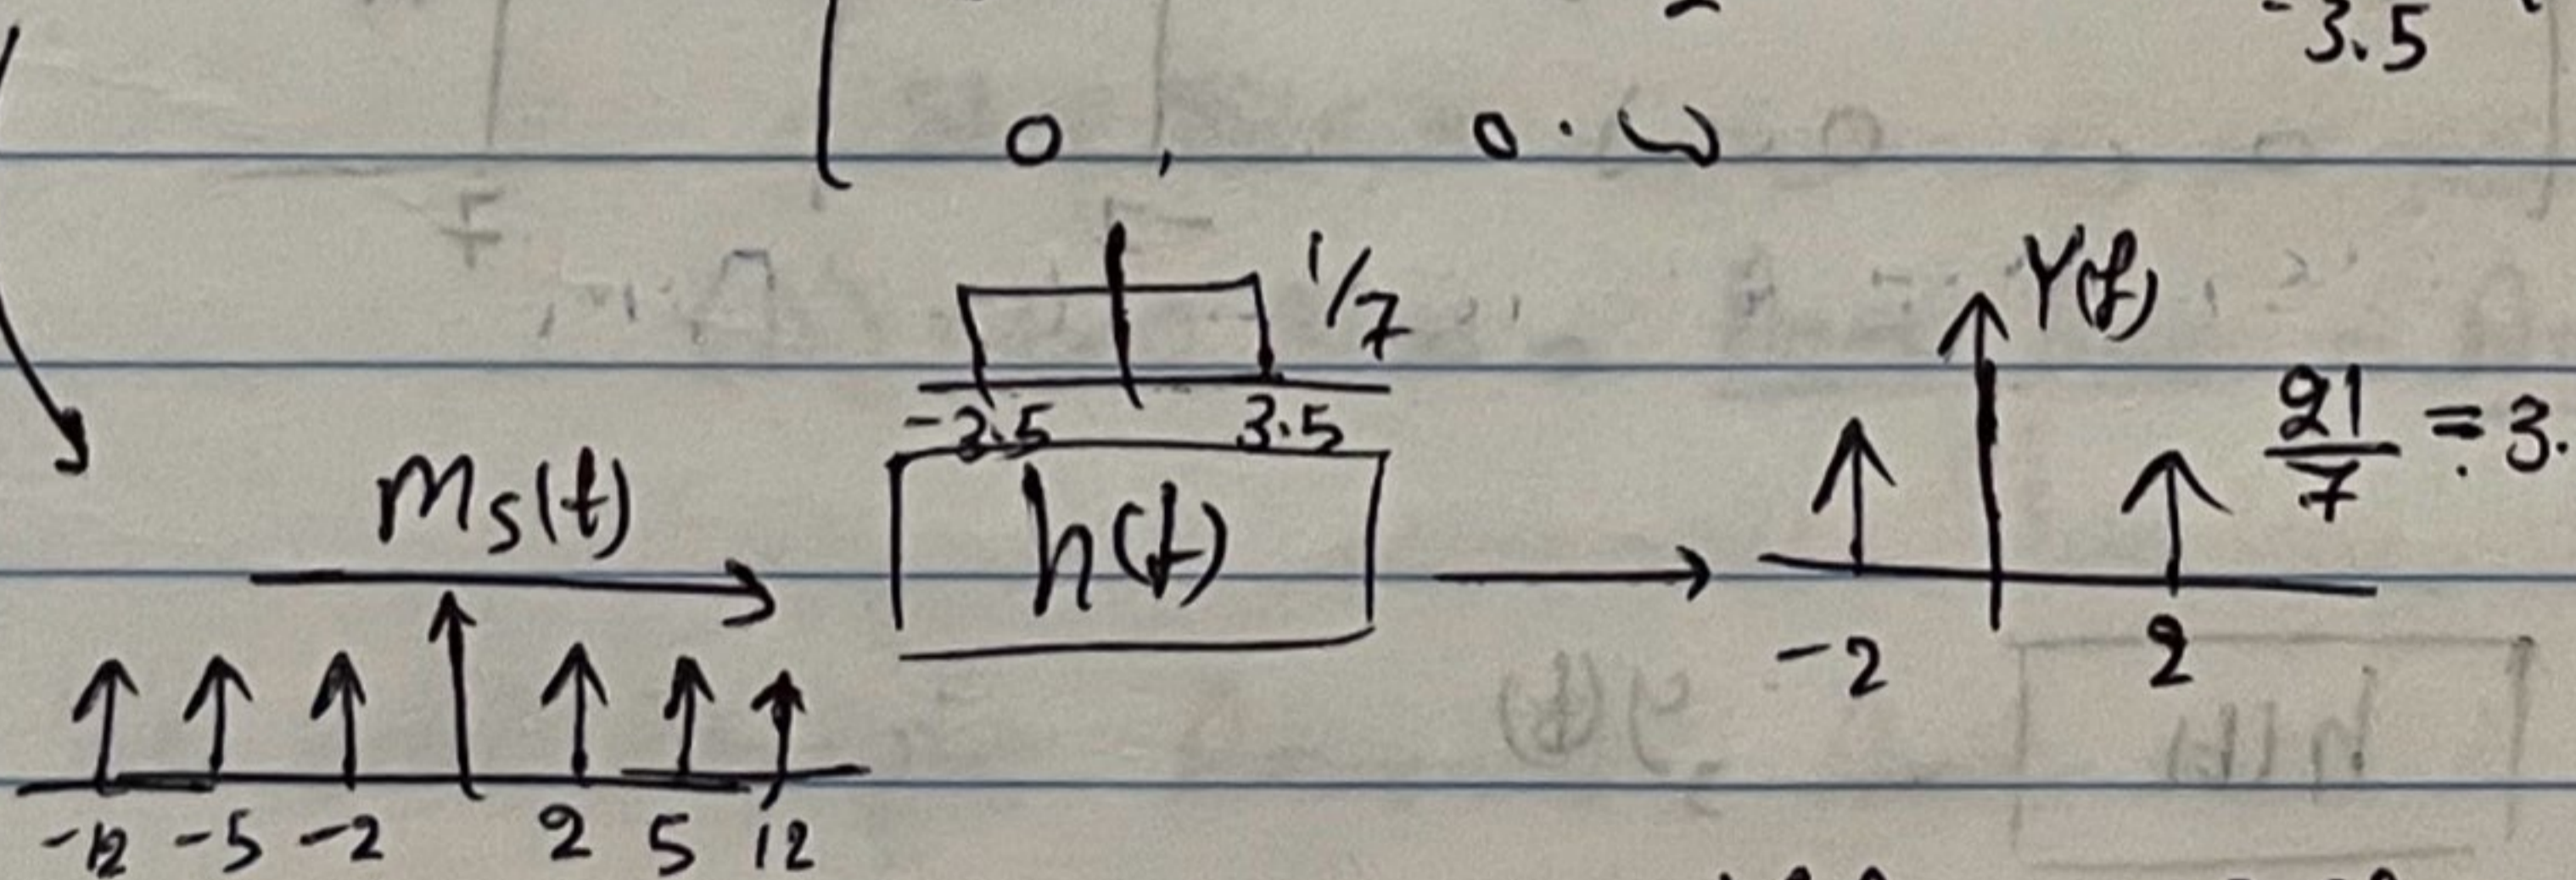 -3.5
0 , 0.ω
1/7
-3.5 3.5
Y(f)
21/7 = 3.
ms(t)
h(t)
-2 2
-12 -5 -2 2 5 12